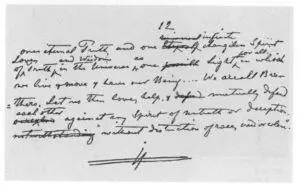 12
infinite
one eternal Truth, and one changeless Spirit
Love, and Wisdom as for all,
of truth, in the Universe & one Light, in which
we live & move & have our being.... We are all Bro-
thers. Let us then love, help, & mutually defend
each other against any Spirit of untruth or deception,
without distinction of race, creed or color.